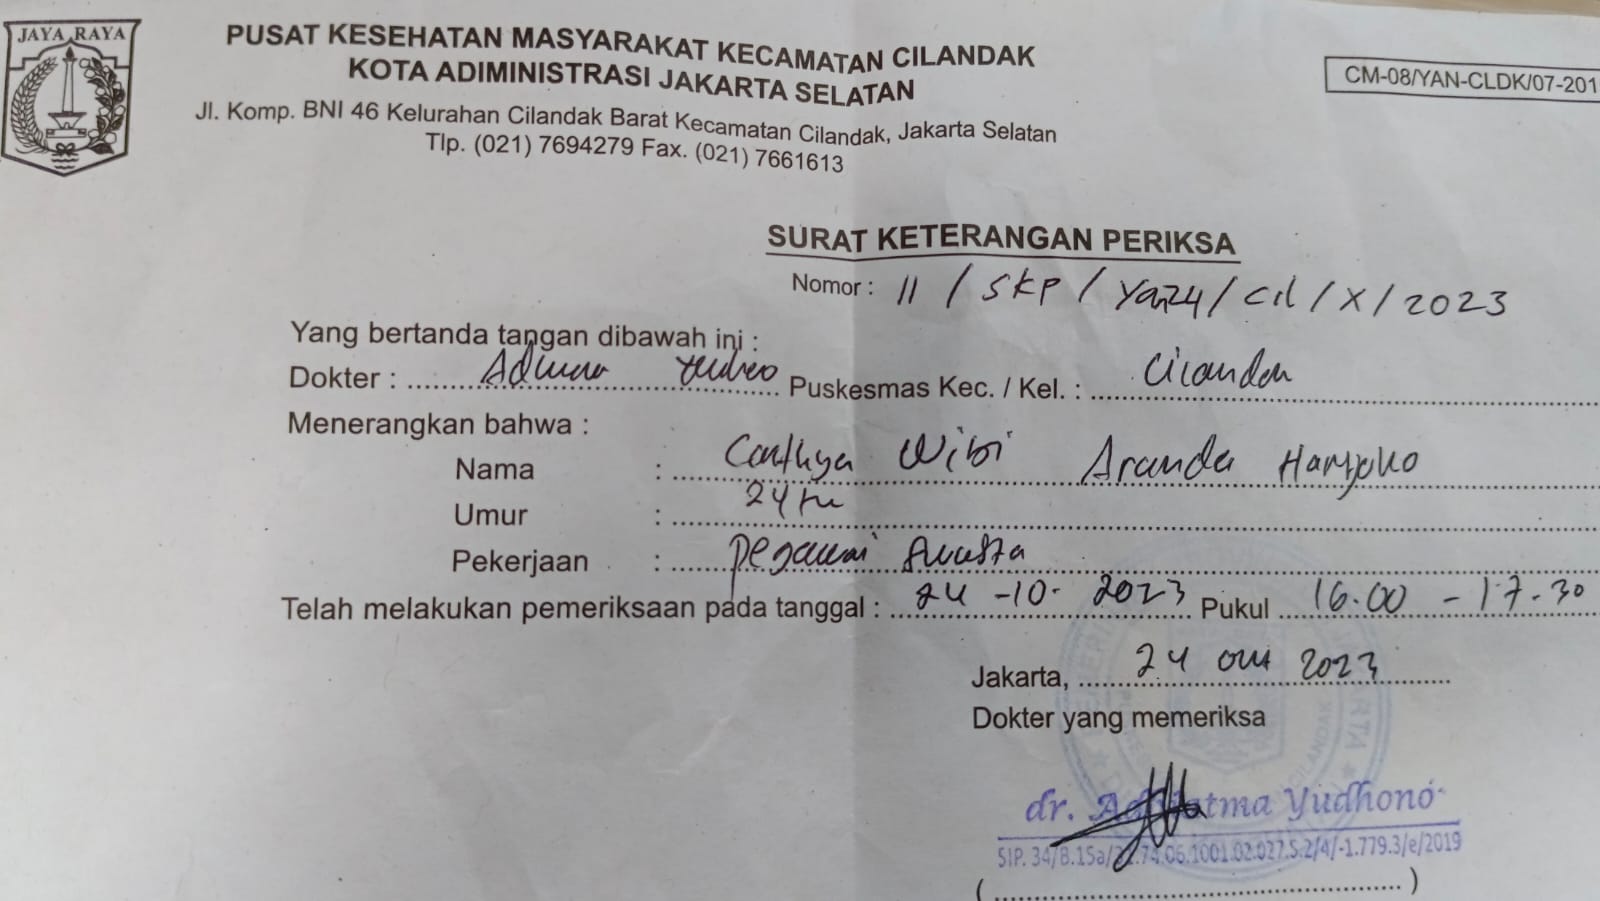 JAYA RAYA
PUSAT KESEHATAN MASYARAKAT KECAMATAN CILANDAK
KOTA ADIMINISTRASI JAKARTA SELATAN
Jl. Komp. BNI 46 Kelurahan Cilandak Barat Kecamatan Cilandak, Jakarta Selatan
Tlp. (021) 7694279 Fax. (021) 7661613
CM-08/YAN-CLDK/07-201
SURAT KETERANGAN PERIKSA
Nomor : 11 / SKP / Yan24 / Cil / X / 2023
Yang bertanda tangan dibawah ini :
Dokter : Puskesmas Kec. / Kel. : Cilandak
Menerangkan bahwa :
Nama : Wibi Aranda Harjoko
Umur : 24
Pekerjaan : Pegawai
Telah melakukan pemeriksaan pada tanggal : 24 -10- 2023 Pukul 16.00 - 17.30
Jakarta, 24 2023
Dokter yang memeriksa
dr. Yudhono
SIP. 34/B.15a/ .74.06.1001.02.027.S.2/4/-1.779.3/e/2019
( )